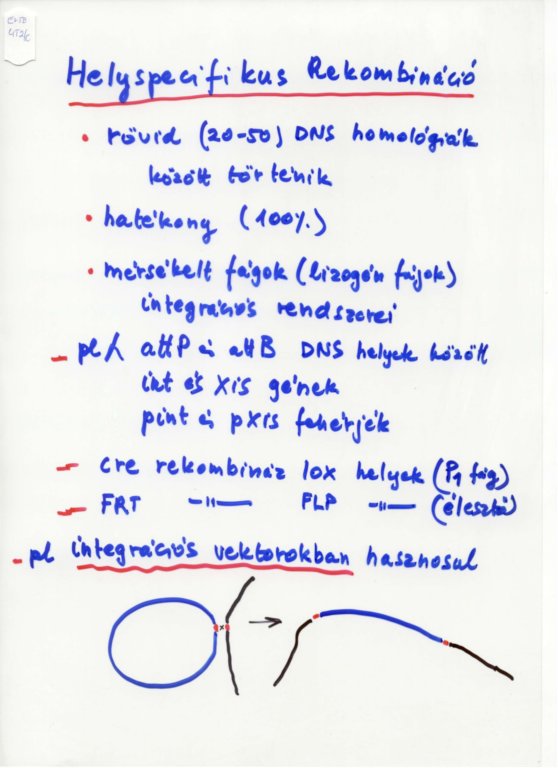 Helyspecifikus Rekombináció
• rövid (20-50) DNS homológiák
között történik
• hatékony (100%)
• mérsékelt fágok (lizogén fágok)
integrációs rendszerei
- pl λ attP és attB DNS helyek között
int és xis gének
pint és pxis fehérjék
- cre rekombináz lox helyek (P1 fág)
- FRT —"— FLP —"— (élesztő)
- pl integrációs vektorokban hasznosul
x →